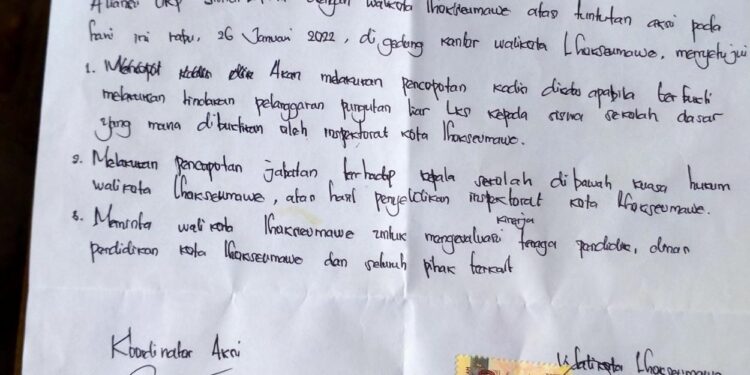 Aliansi OKP dengan walikota lhokseumawe atas tuntutan aksi pada
hari ini rabu, 26 Januari 2022, di gedung kantor walikota Lhokseumawe, menyetujui
1. Akan melakukan pencopotan kadis dikbd apabila terbukti
melakukan tindakan pelanggaran pungutan liar LKS kepada siswa sekolah dasar
yang mana dibuktikan oleh inspektorat kota lhokseumawe.
2. Melakukan pencopotan jabatan terhadap kepala sekolah dibawah kuasa hukum
walikota lhokseumawe, atas hasil penyelidikan inspektorat kota lhokseumawe.
3. Meminta walikota lhokseumawe untuk mengevaluasi kinerja tenaga pendidik, dinas
pendidikan kota lhokseumawe dan seluruh pihak terkait
Koordinator Aksi
Walikota Lhokseumawe